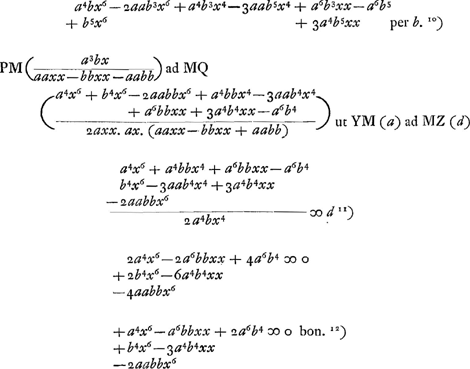 a⁴bx⁶ — 2aab³x⁶ + a⁴b³x⁴ — 3aab⁵x⁴ + a⁶b³xx — a⁶b⁵
+ b⁵x⁶ + 3a⁴b⁵xx per b. ¹⁰)
PM ( a³bx / aaxx — bbxx — aabb ) ad MQ
( a⁴x⁶ + b⁴x⁶ — 2aabbx⁶ + a⁴bbx⁴ — 3aab⁴x⁴
+ a⁶bbxx + 3a⁴b⁴xx — a⁶b⁴
/ 2axx. ax. (aaxx — bbxx + aabb) ) ut YM (a) ad MZ (d)
a⁴x⁶ + a⁴bbx⁴ + a⁶bbxx — a⁶b⁴
b⁴x⁶ — 3aab⁴x⁴ + 3a⁴b⁴xx
— 2aabbx⁶
/ 2a⁴bx⁴ ∞ d ¹¹)
2a⁴x⁶ — 2a⁶bbxx + 4a⁶b⁴ ∞ 0
+ 2b⁴x⁶ — 6a⁴b⁴xx
— 4aabbx⁶
+ a⁴x⁶ — a⁶bbxx + 2a⁶b⁴ ∞ 0 bon. ¹²)
+ b⁴x⁶ — 3a⁴b⁴xx
— 2aabbx⁶